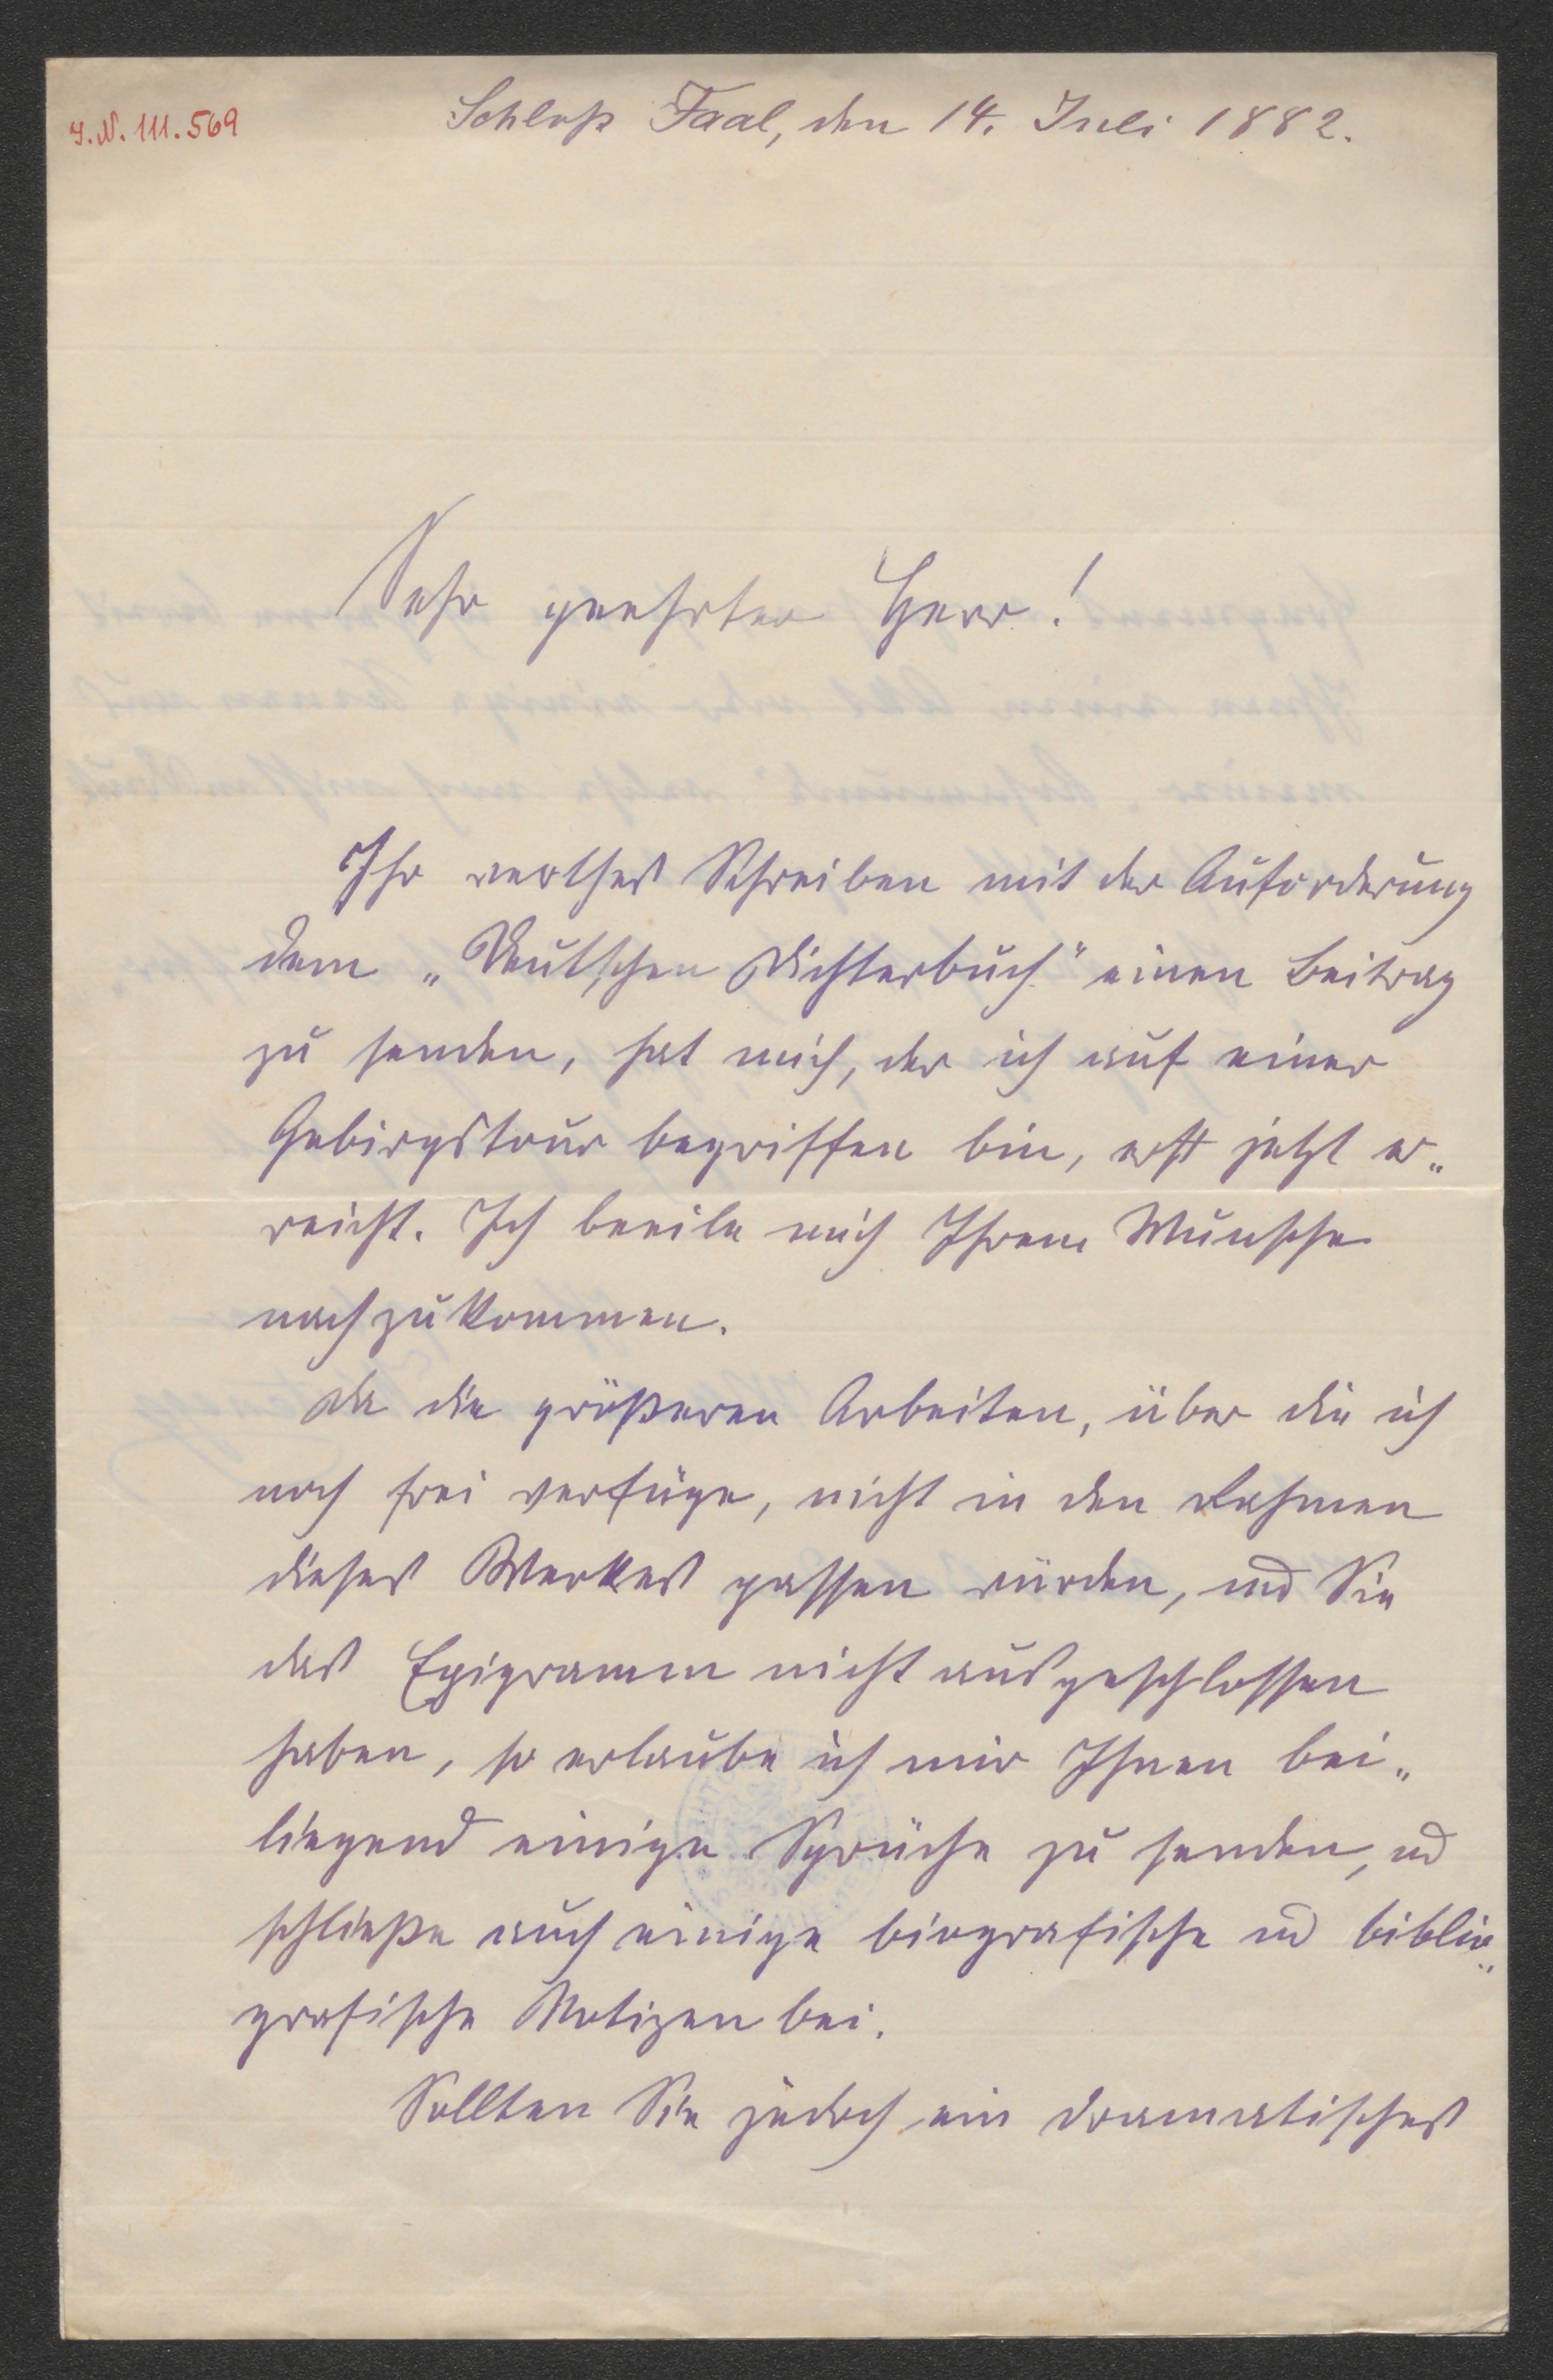 I.N. 111.569
Schloß Faal, den 14. Juli 1882.
Sehr geehrter Herr!
Ihr werthes Schreiben mit der Auforderung
dem „Deutschen Dichterbuch" einen Beitrag
zu senden, hat mich, der ich auf einer
Gebirgstour begriffen bin, erst jetzt er„
reicht. Ich beeile mich Ihrem Wunsche
nachzukommen.
Da die größeren Arbeiten, über die ich
noch frei verfüge, nicht in den Rahmen
dieses Werkes passen würden, und Sie
das Epigramm nicht ausgeschlossen
haben, so erlaube ich mir Ihnen bei„
liegend einige Sprüche zu senden, ud
schließe auch einige biografische ud biblio„
grafische Notizen bei.
Sollten Sie jedoch ein dramatisches